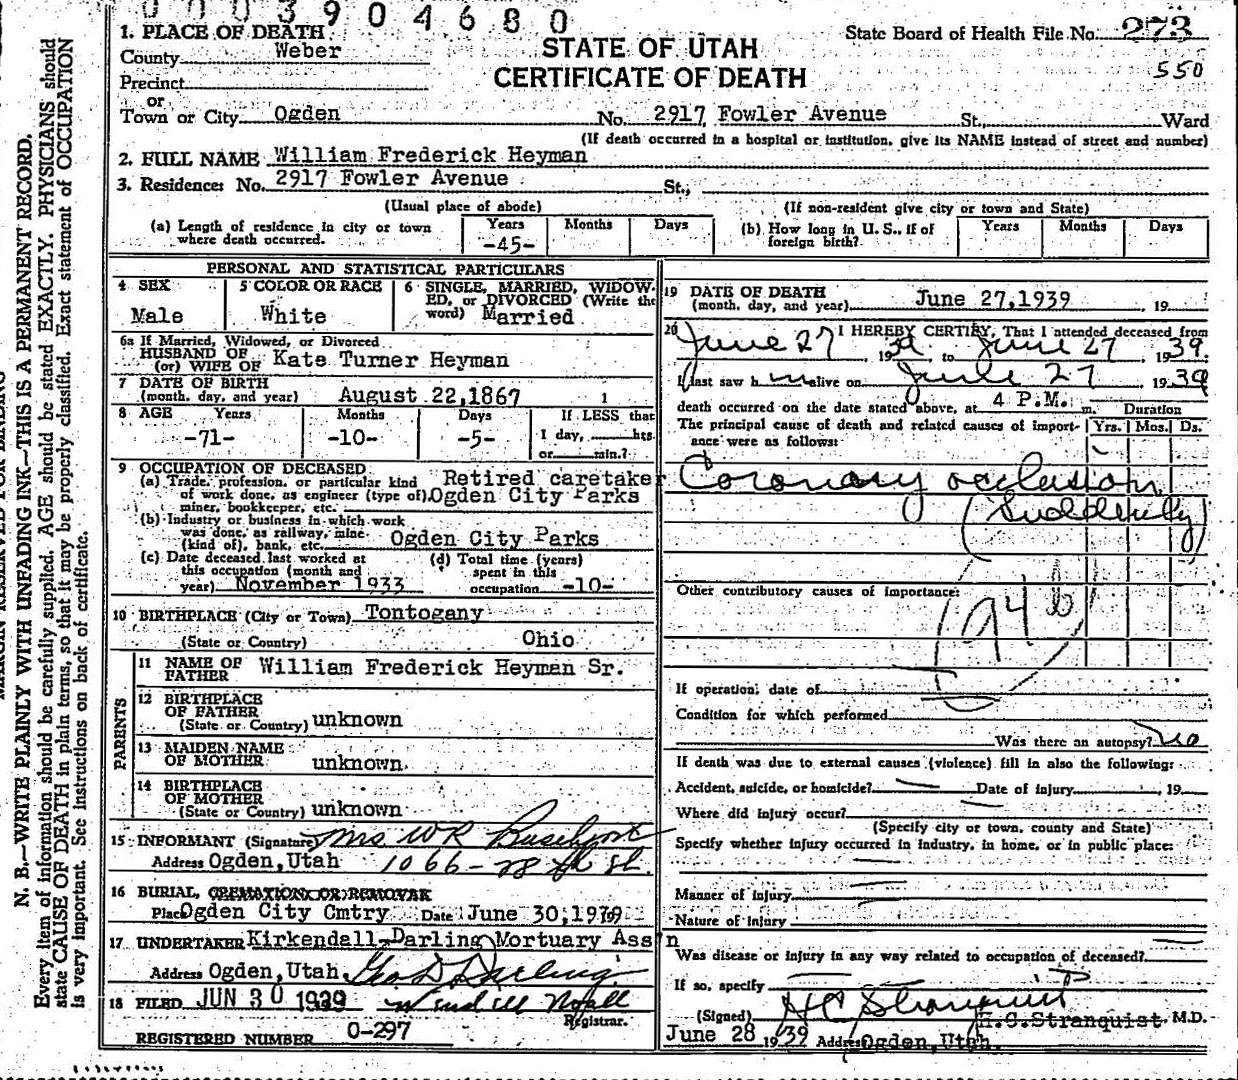 0003904680
1. PLACE OF DEATH
County Weber
Precinct
or
Town or City Ogden
STATE OF UTAH
CERTIFICATE OF DEATH
State Board of Health File No. 273
550
No. 2917 Fowler Avenue St., Ward
(If death occurred in a hospital or institution, give its NAME instead of street and number)
2. FULL NAME William Frederick Heyman
3. Residence: No. 2917 Fowler Avenue St.,
(Usual place of abode) (If non-resident give city or town and State)
(a) Length of residence in city or town where death occurred. Years -45- Months Days
(b) How long in U. S., if of foreign birth? Years Months Days
PERSONAL AND STATISTICAL PARTICULARS
4 SEX Male
5 COLOR OR RACE White
6 SINGLE, MARRIED, WIDOW-
ED, or DIVORCED (Write the
word) Married
6a If Married, Widowed, or Divorced
HUSBAND OF
(or) WIFE OF Kate Turner Heyman
7 DATE OF BIRTH
(month, day, and year) August 22,1867
8 AGE Years -71- Months -10- Days -5-
If LESS than
1 day, hrs.
or min.?
9 OCCUPATION OF DECEASED
(a) Trade, profession, or particular kind
of work done, as engineer (type of),
miner, bookkeeper, etc.
Retired caretaker
Ogden City Parks
(b) Industry or business in which work
was done, as railway, mine
(kind of), bank, etc. Ogden City Parks
(c) Date deceased last worked at
this occupation (month and
year) November 1933
(d) Total time (years)
spent in this
occupation -10-
10 BIRTHPLACE (City or Town) Tontogany
(State or Country) Ohio
PARENTS
11 NAME OF
FATHER William Frederick Heyman Sr.
12 BIRTHPLACE
OF FATHER
(State or Country) unknown
13 MAIDEN NAME
OF MOTHER unknown
14 BIRTHPLACE
OF MOTHER
(State or Country) unknown
15 INFORMANT (Signature) Mrs W R
Address Ogden,Utah 1066-28 th St.
16 BURIAL, CREMATION OR REMOVAL
Place Ogden City Cmtry Date June 30,1939
17 UNDERTAKER Kirkendall-Darling Mortuary Ass'n
Address Ogden,Utah Geo D Darling
18 FILED JUN 30 1939
Registrar.
REGISTERED NUMBER 0-297
19 DATE OF DEATH
(month, day, and year) June 27,1939 19
20 I HEREBY CERTIFY, That I attended deceased from
June 27 1939, to June 27 1939.
I last saw him alive on June 27 1939
death occurred on the date stated above, at 4 P.M. m. Duration
The principal cause of death and related causes of import-
ance were as follows: Yrs. Mos. Ds.
Coronary occlusion
(Suddenly)
Other contributory causes of importance:
94b
If operation, date of
Condition for which performed
Was there an autopsy? no
If death was due to external causes (violence) fill in also the following:
Accident, suicide, or homicide? Date of injury 19
Where did injury occur?
(Specify city or town, county and State)
Specify whether injury occurred in industry, in home, or in public place:
Manner of injury
Nature of injury
Was disease or injury in any way related to occupation of deceased?
If so, specify
(Signed) H C Stranquist
H.C.Stranquist M.D.
June 28 1939 Address Ogden,Utah.
N. B.—WRITE PLAINLY WITH UNFADING INK—THIS IS A PERMANENT RECORD.
Every item of information should be carefully supplied. AGE should be stated EXACTLY. PHYSICIANS should
state CAUSE OF DEATH in plain terms, so that it may be properly classified. Exact statement of OCCUPATION
is very important. See instructions on back of certificate.